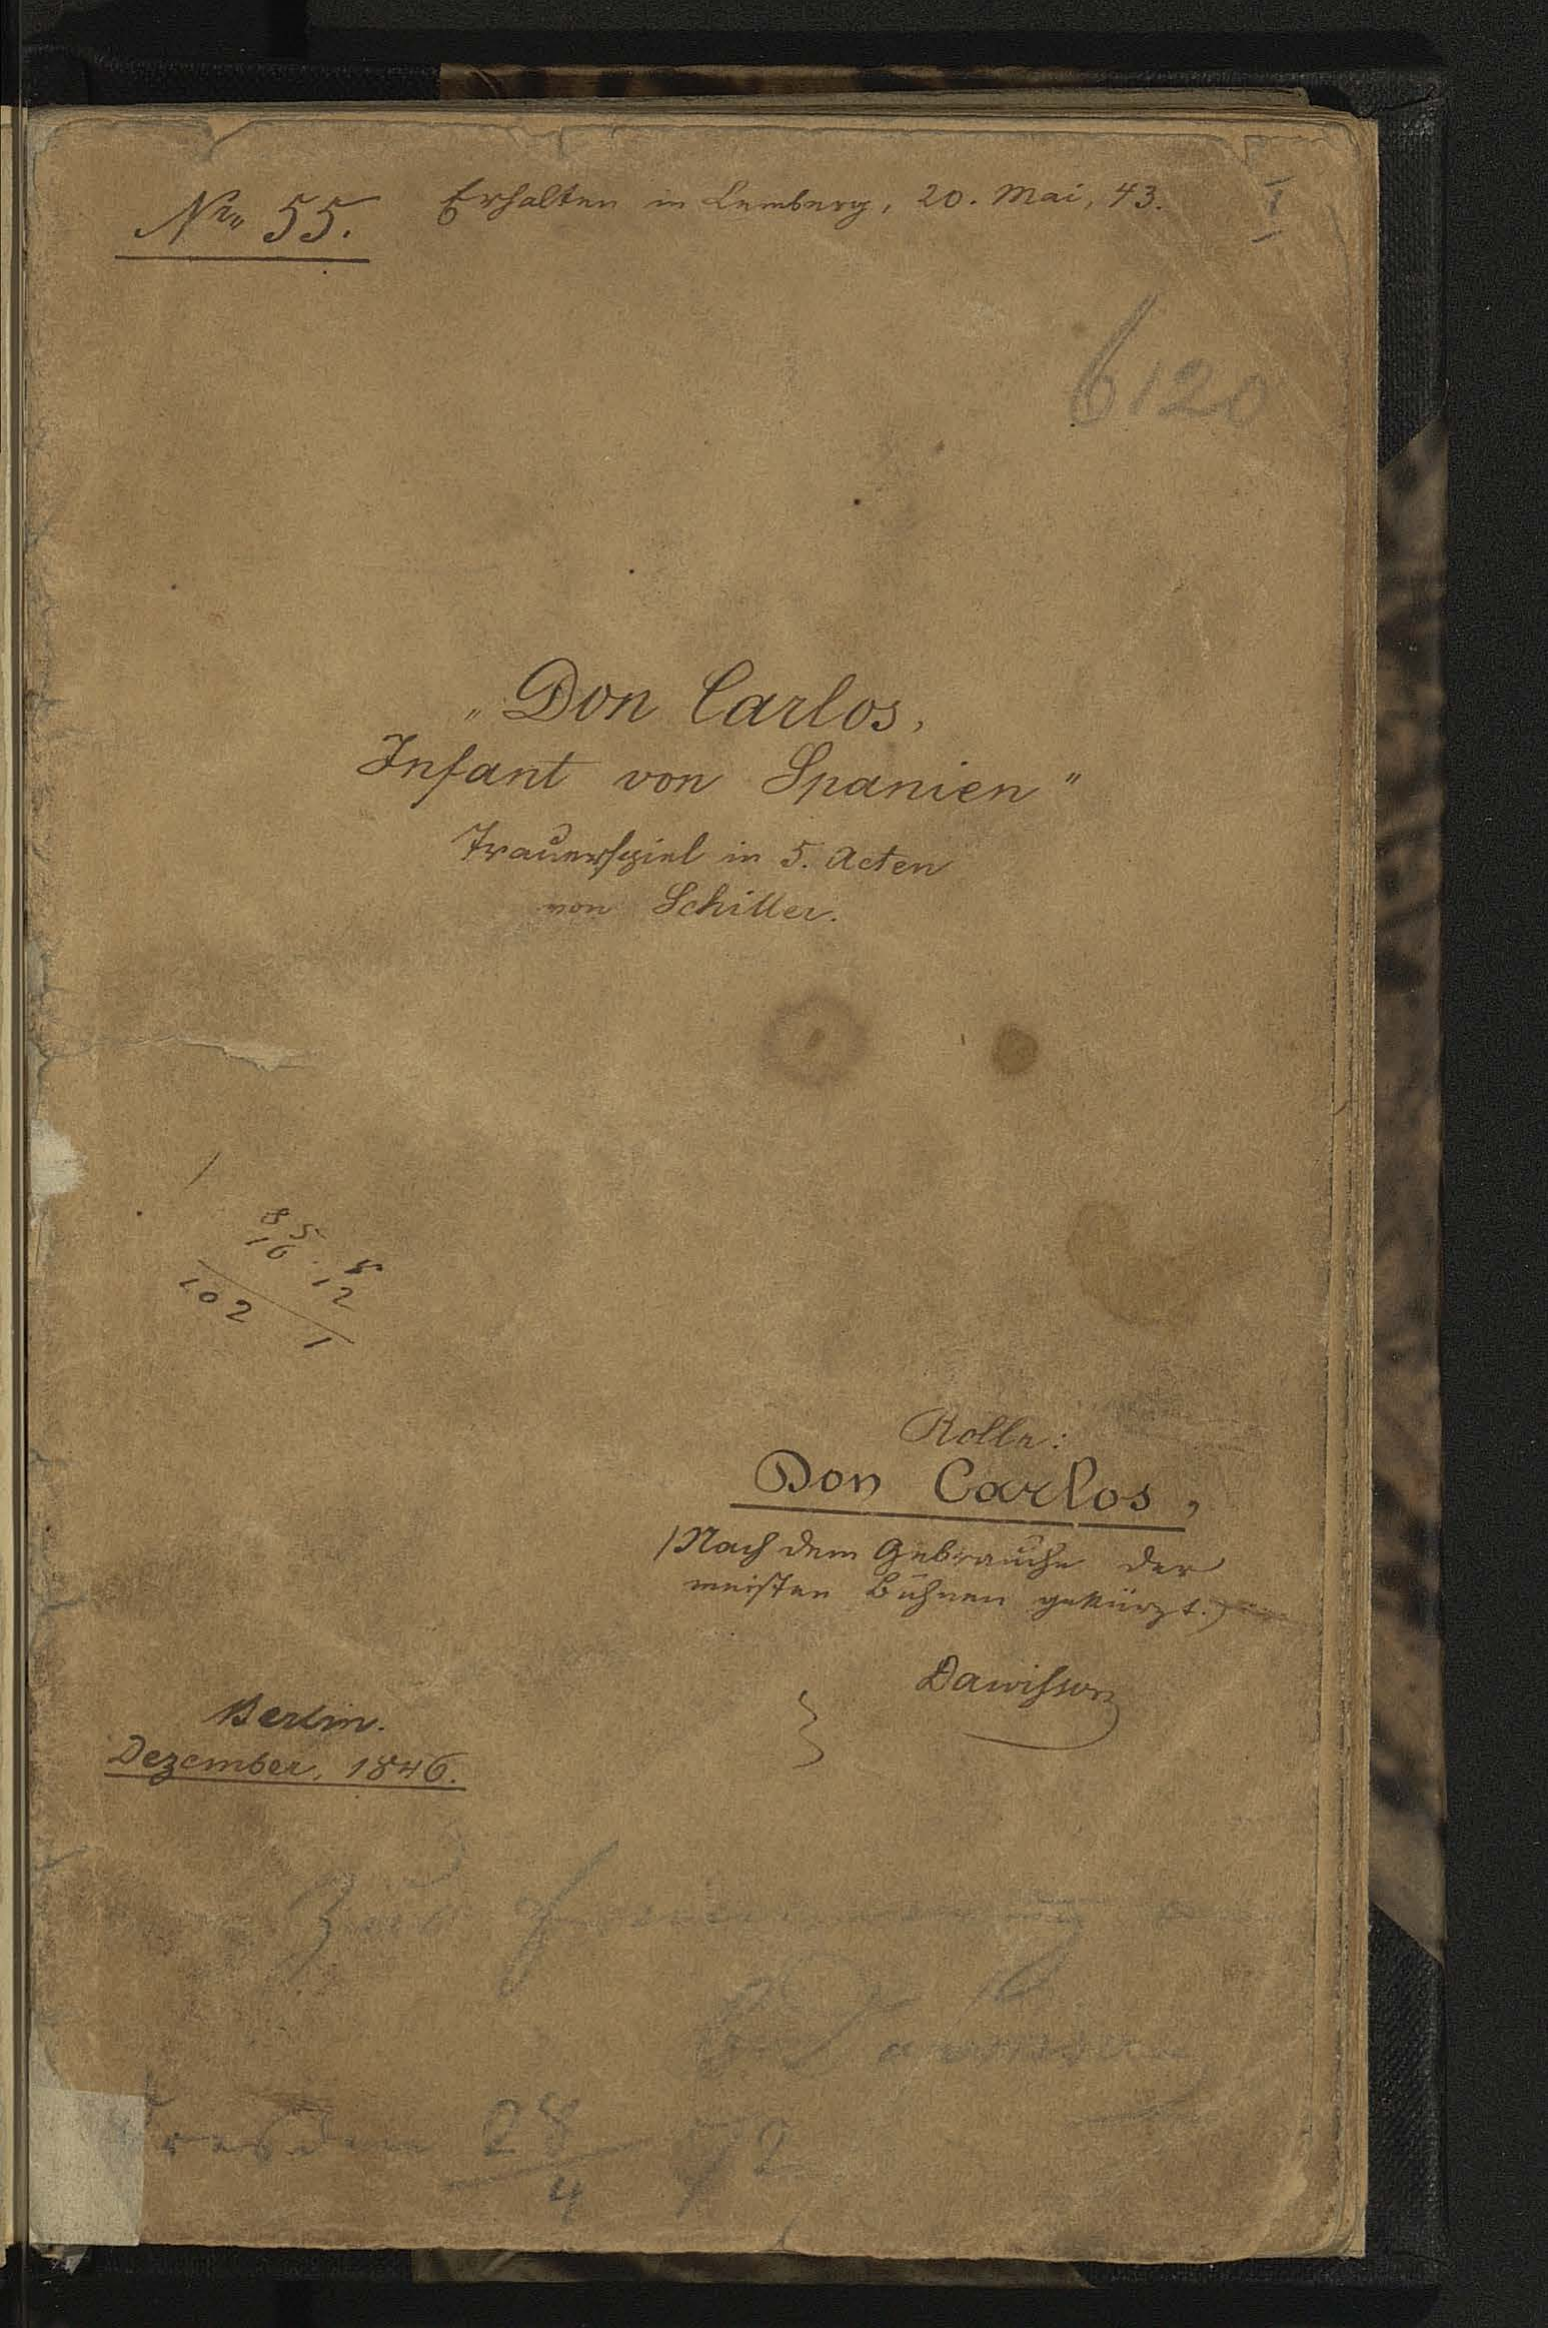 Nro 55.
Erhalten in Lemberg, 20. Mai, 43.
1
6120
„Don Carlos,
Infant von Spanien"
Trauerspiel in 5. Acten
von Schiller.
85 8
16. 12
102 1
Rolle:
Don Carlos,
(Nach dem Gebrauche der
meisten Bühnen gekürzt.)
Dawisson
Berlin.
Dezember, 1846.
Zur Erinnerung
Dresden 28/4 72